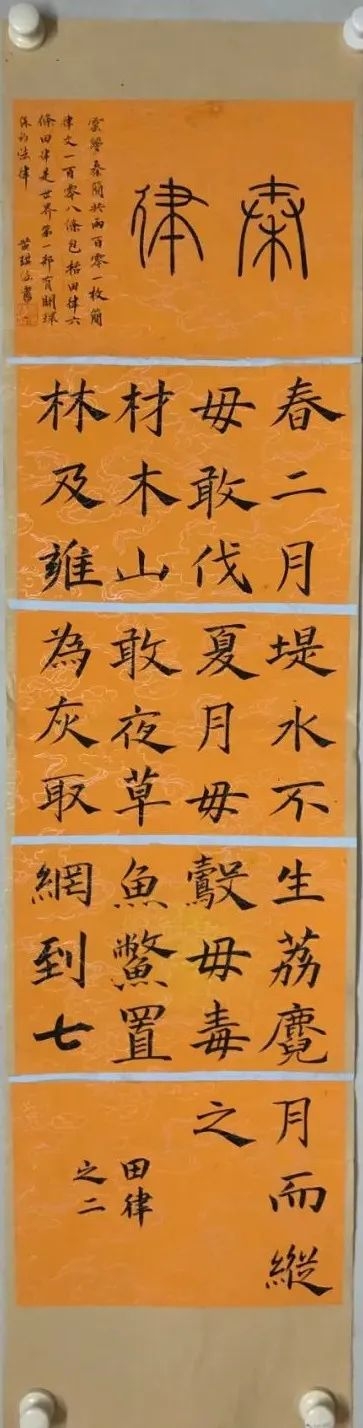 秦律
雲夢秦簡共兩百零一枚簡
律文一百零八條包括田律六
條田律是世界第一部有關環
保的法律
春二月
毋敢伐
材木山
林及雍
堤水不
夏月毋
敢夜草
為灰取
生荔麛
鷇毋毒
魚鱉置
網到七
月而縱
之
田律
之二